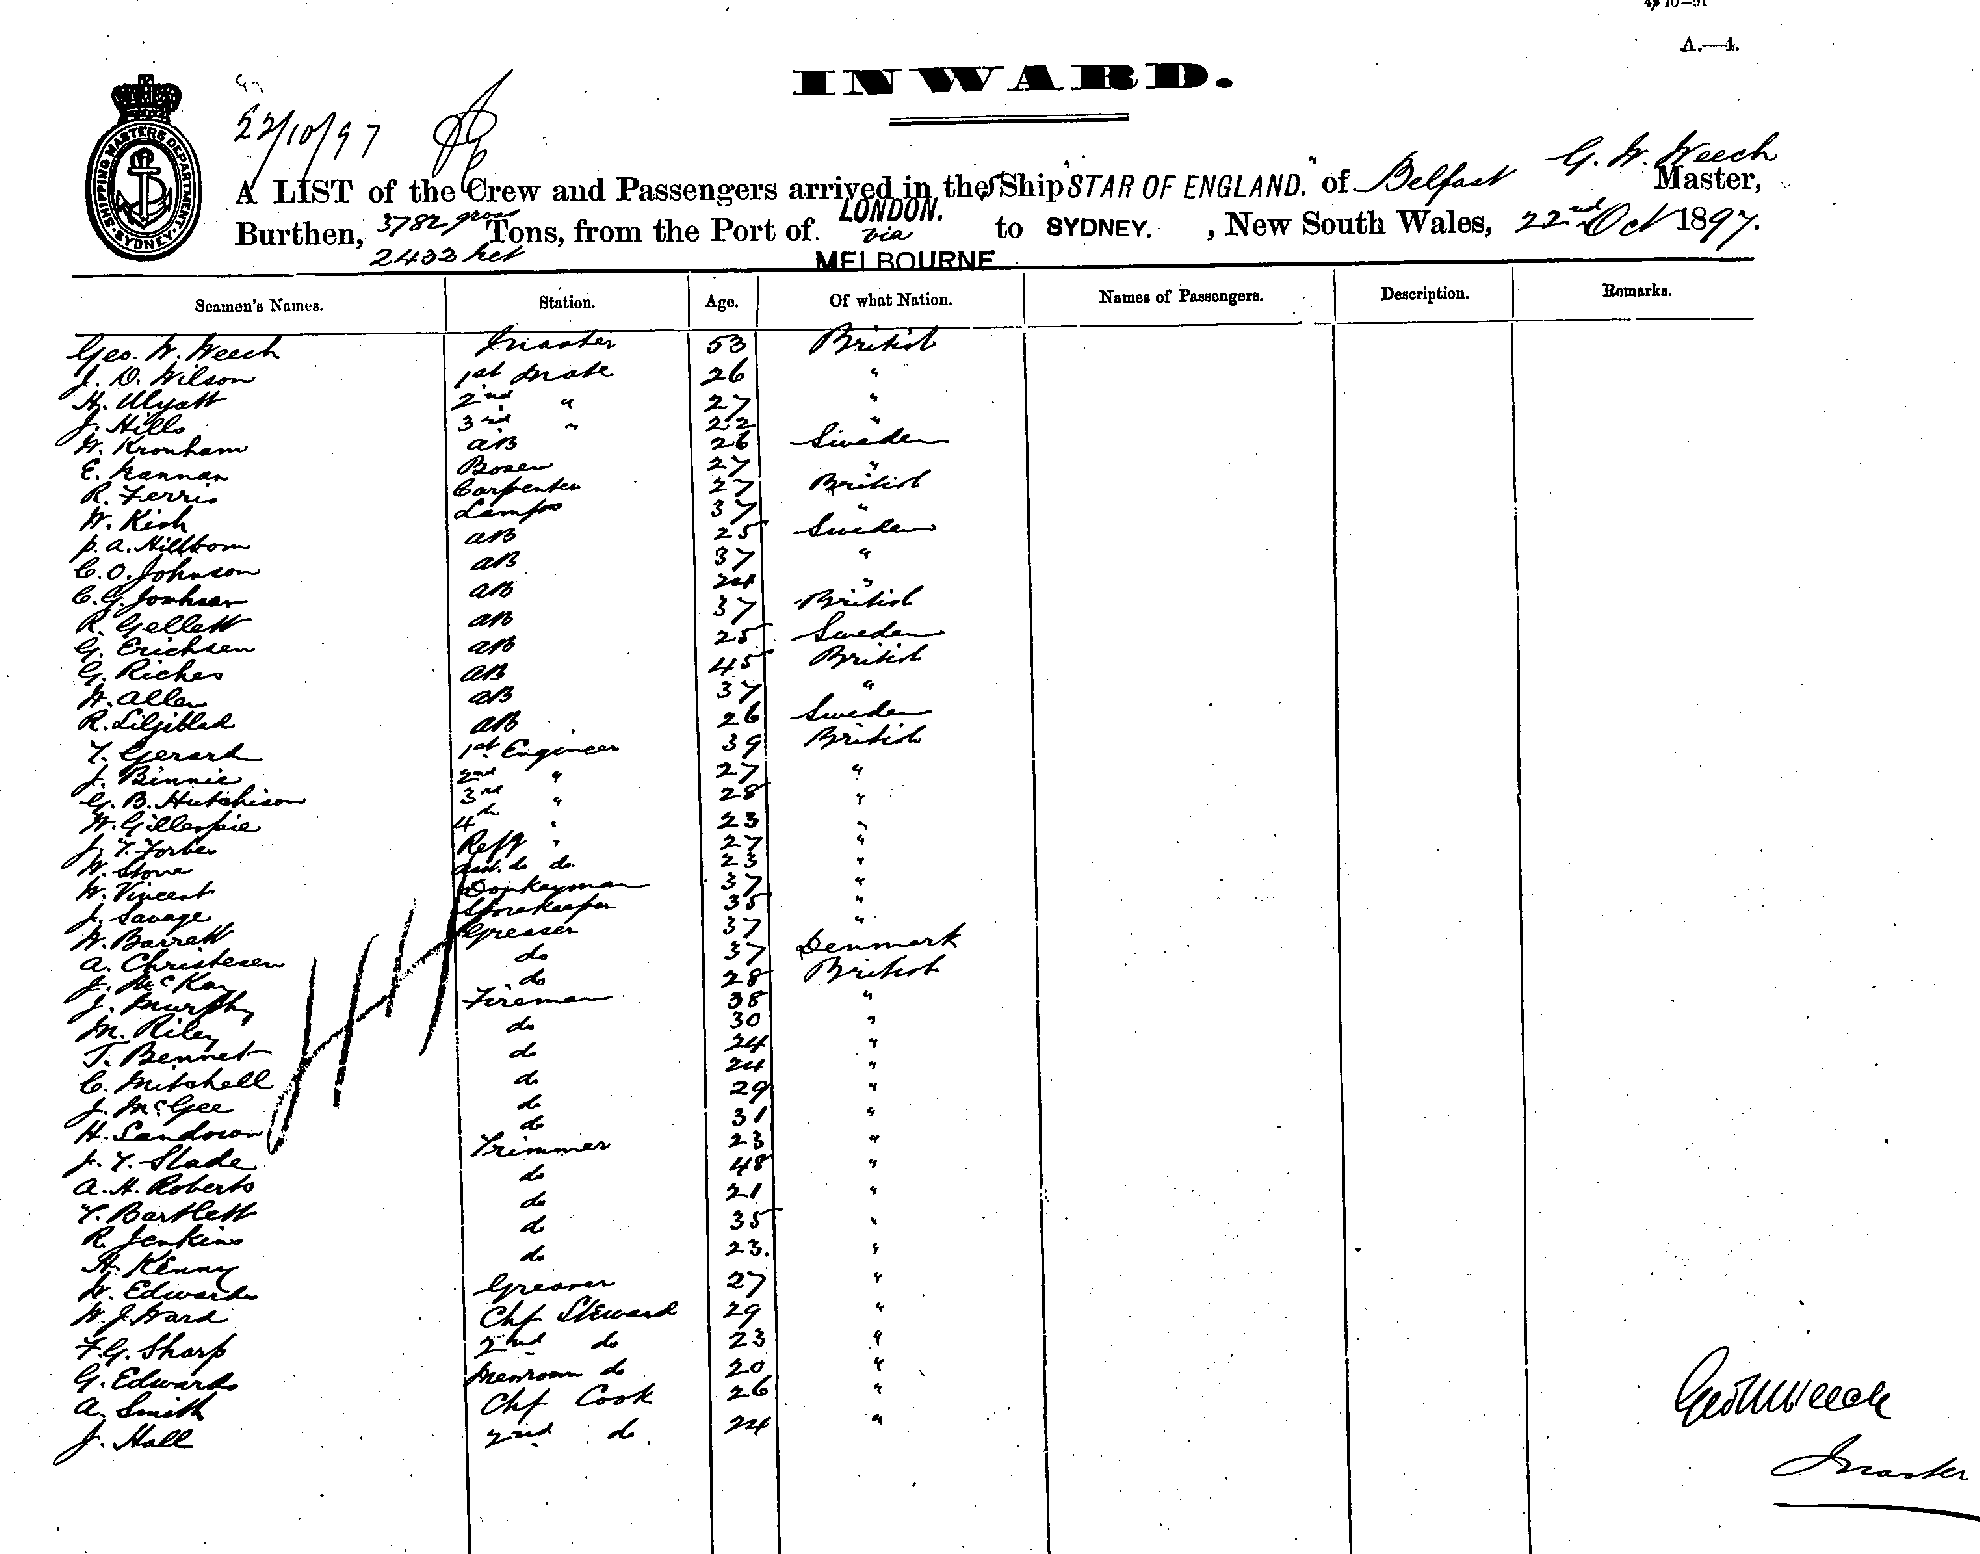 A.—4.
INWARD.
22/10/97
SHIPPING MASTERS DEPARTMENT SYDNEY
G. W. Weech
A LIST of the Crew and Passengers arrived in the Ship "STAR OF ENGLAND." of Belfast Master,
Burthen, 3782 gross Tons, from the Port of LONDON. via to SYDNEY. , New South Wales, 22nd Oct 1897.
2433 net MELBOURNE
Seamen's Names. Station. Age. Of what Nation. Names of Passengers. Description. Remarks.
Geo. W. Weech Master 53 British
J. D. Wilson 1st Mate 26 "
H. Wyatt 2nd " 27 "
J. Hills 3rd " 22 "
W. Kronham AB 26 Sweden
E. Hannan Bosen 27 "
R. Ferris Carpenter 27 British
W. Kish Lamps 37 "
P. A. Hillbom AB 25 Sweden
C. O. Johnson AB 37 "
C. G. AB 24 "
R. Gellett AB 37 British
G. Erichsen AB 25 Sweden
G. Riches AB 45 British
W. Allen AB 37 "
R. Liljiblad AB 26 Sweden
T. Gerard 1st Engineer 39 British
J. Binnie 2nd " 27 "
G. B. Hutchison 3rd " 28 "
W. Gillespie 4th " 23 "
J. T. Forbes Refg " 27 "
W. Stone Asst. do do 23 "
W. Vincent Donkeyman 37 "
J. Savage Storekeeper 35 "
W. Barrett Greaser 37 "
A. Christesen do 37 Denmark
J. McKay do 28 British
J. Murphy Fireman 38 "
M. Riley do 30 "
T. Bennet do 24 "
C. Mitchell do 24 "
J. McGee do 29 "
H. Sandown do 31 "
J. T. Slade Trimmer 23 "
A. H. Roberts do 48 "
T. Bartlett do 21 "
R. Jenkins do 35 "
H. Kenny do 23. "
W. Edwards Greaser 27 "
W. J. Ward Chf Steward 29 "
F. G. Sharp 2nd do 23 "
G. Edwards Messroom do 20 "
A. Smith Chf Cook 26 "
J. Hall 2nd do. 24 "
Geo W Weech
Master